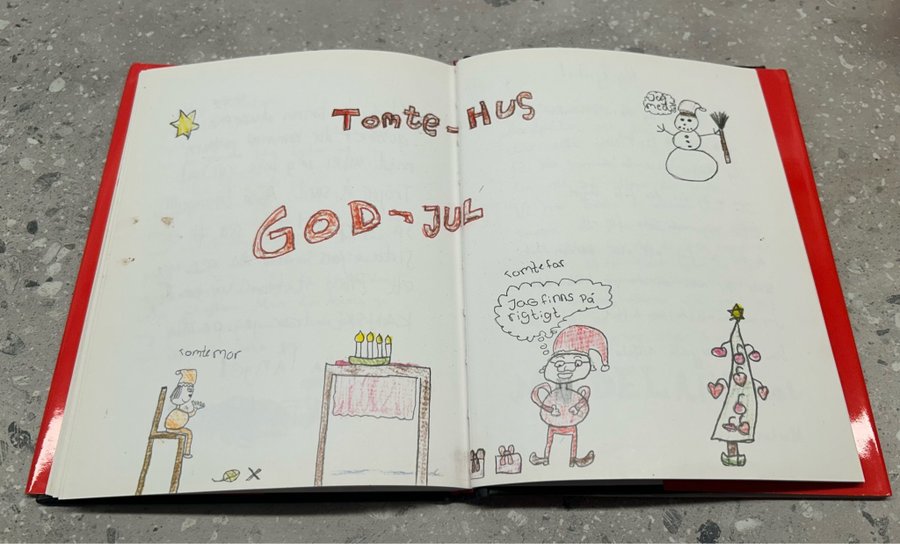 Tomte-HUS
Jag
med
GOD-JUL
tomtefar
Jag finns på
rigtigt
tomtemor